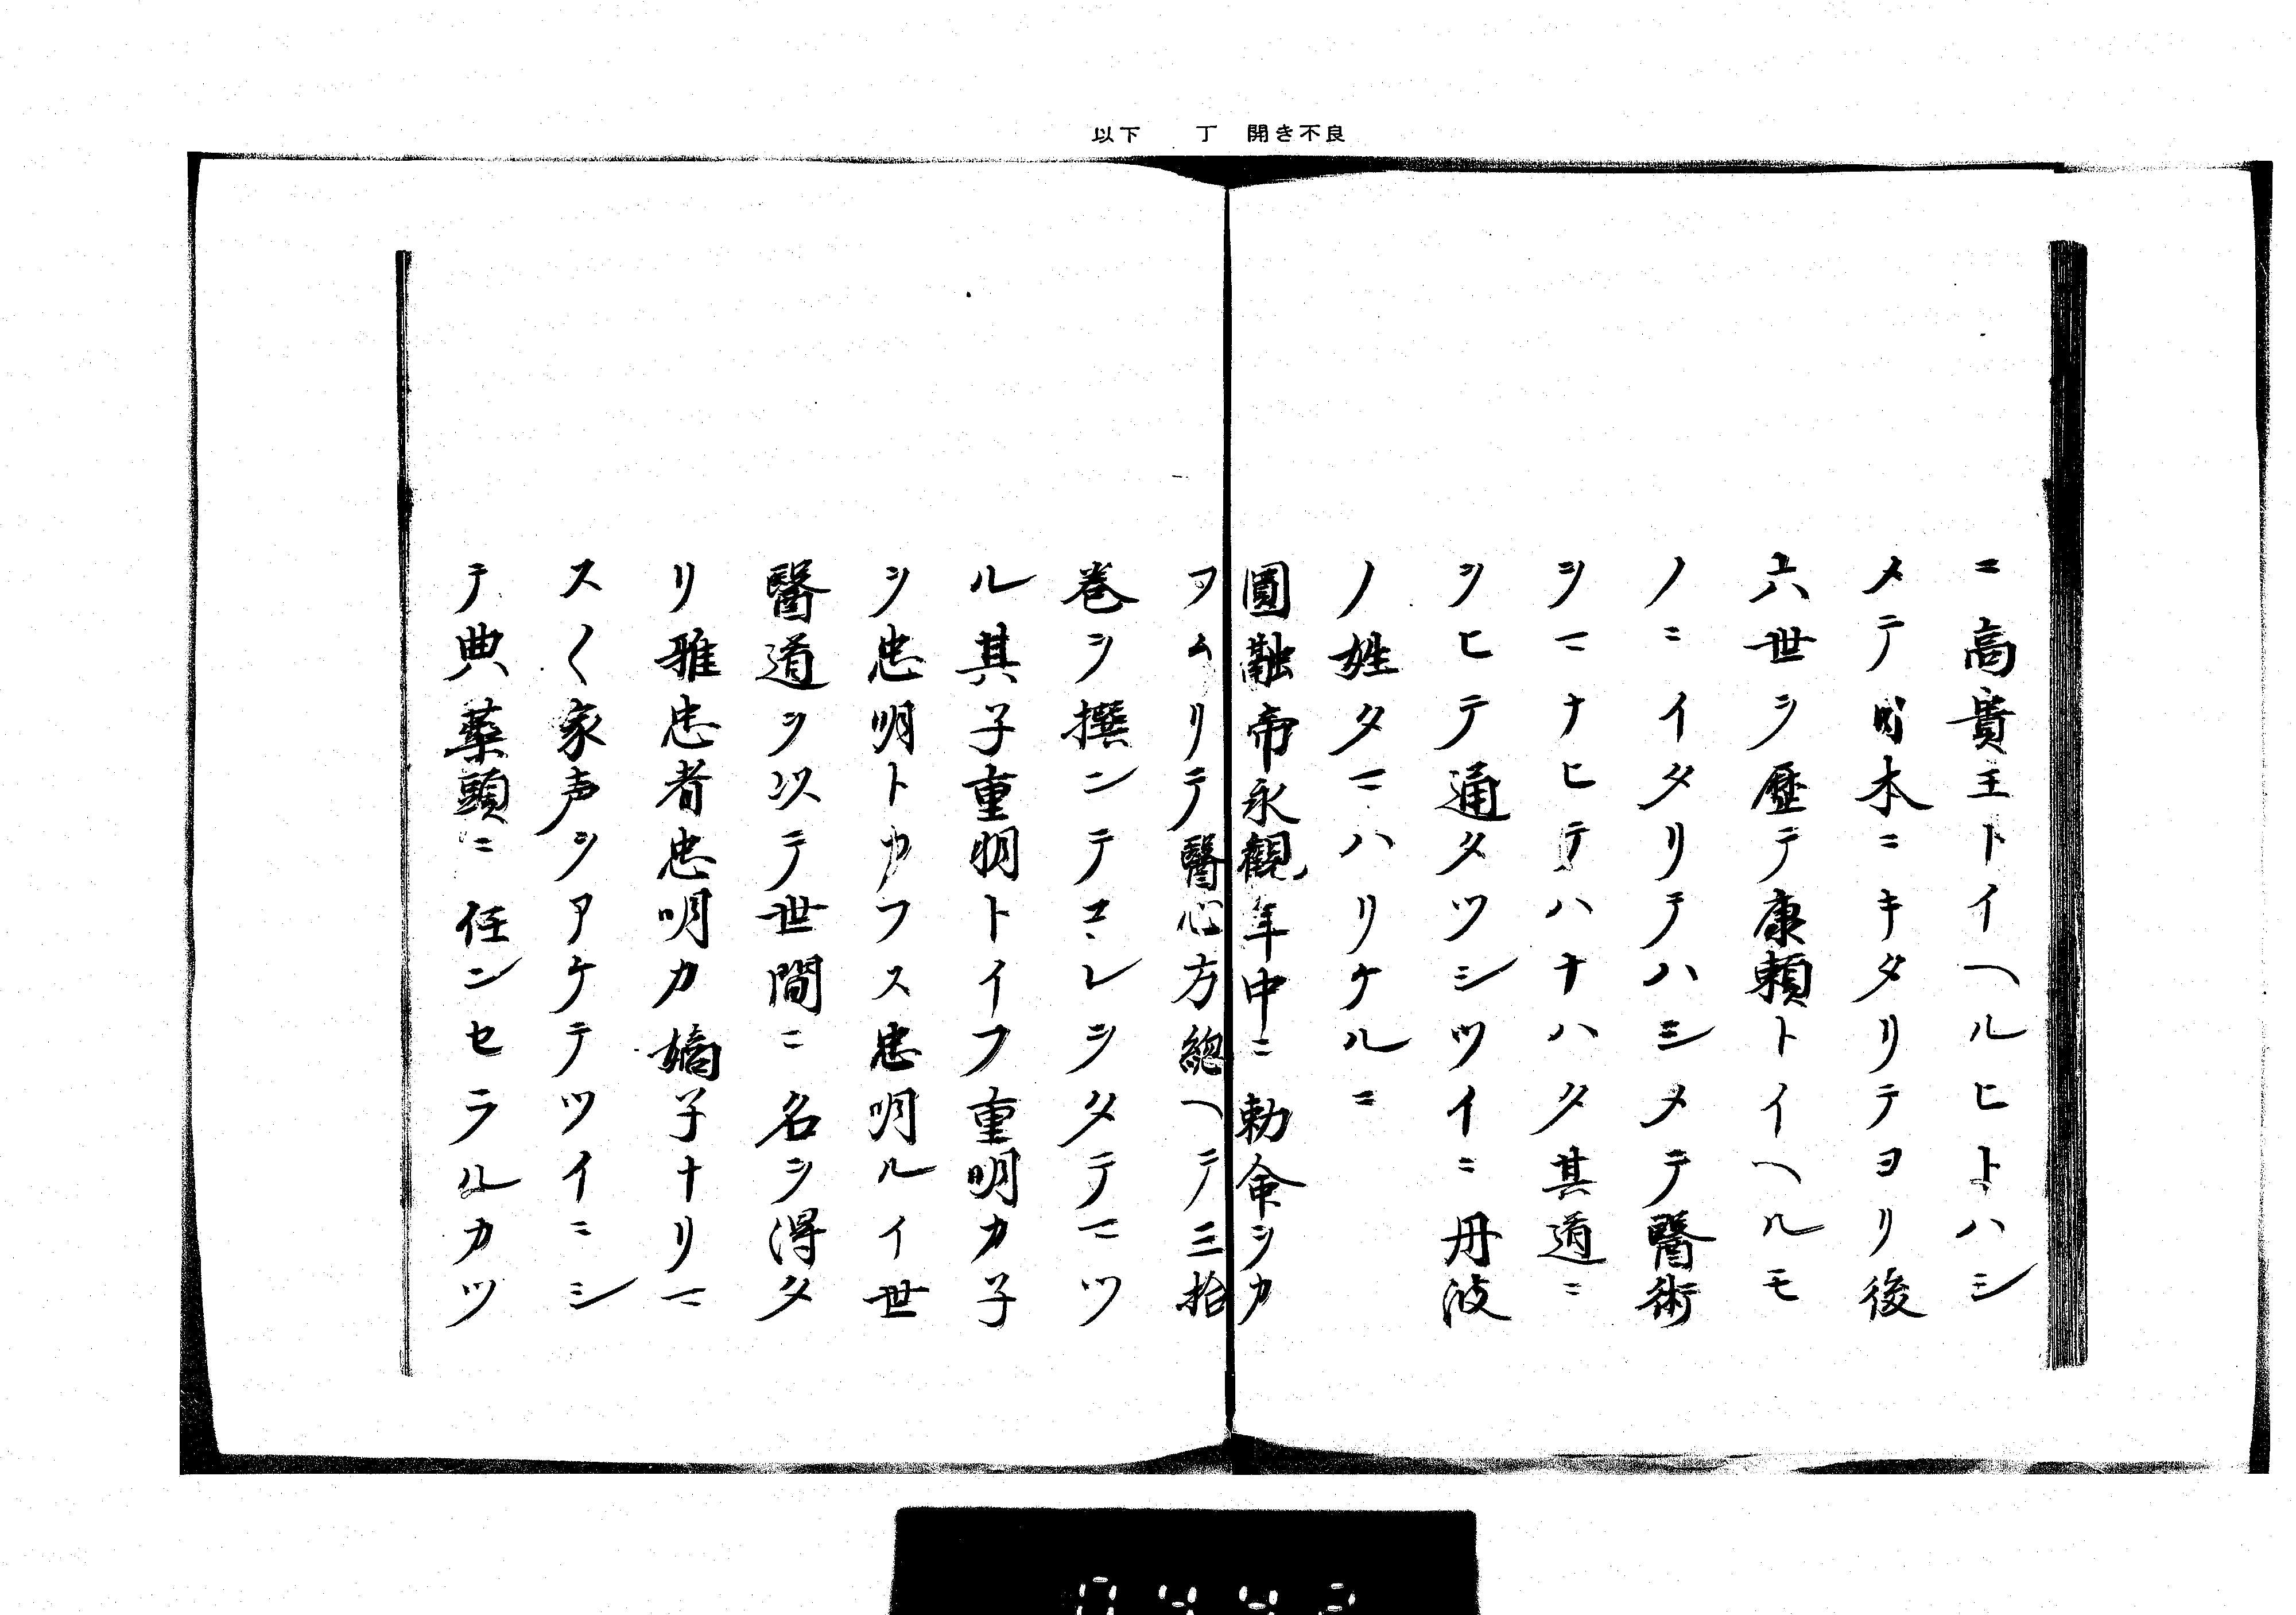 以下　丁　開き不良
ニ高貴王トイヘルヒトハシ
メテ日本ニキタリテヨリ後
六世ヲ歴テ康頼トイヘルモ
ノニイタリテハシメテ醫術
ヲマナヒテハナハタ其道ニ
シヒテ通タツシツイニ丹波
ノ姓タマハリケルニ
圓融帝永觀年中ニ勅命ヲカ
フムリテ醫心方總ヘテ三拾
巻ヲ撰ンテコレヲタテマツ
ル其子重明トイフ重明カ子
ヲ忠明トカフス忠明ルイ世
醫道ヲ以テ世間ニ名ヲ得タ
リ雅忠者忠明カ嫡子ナリマ
スく家声ヲアケテツイニシ
テ典薬頭ニ任ンセラルカツ